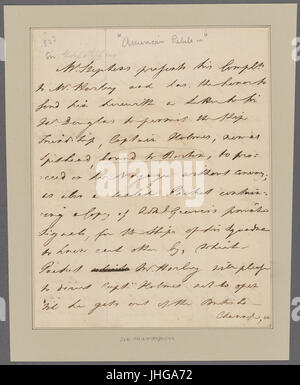 "American Rebels"
Mr. Stephens presents his Complts
to Mr. Horley and has the honor to
send him herewith a Letter to Sir
Jas. Douglas to permit the Ship
Friendship, Captain Holmes, now at
Spithead, bound to Boston, to pro-
ceed on her Voyage without Convoy;
as also a sealed Packet contain-
ing a Copy of Adml. Graves's private
Signals, for the Ships of his Squadron
to know each other by, which
Packet Mr. Horley will please
to direct Captn. Holmes not to open
'til he gets out of the British
Channel,
alamy
Image ID: JHGA72
www.alamy.com